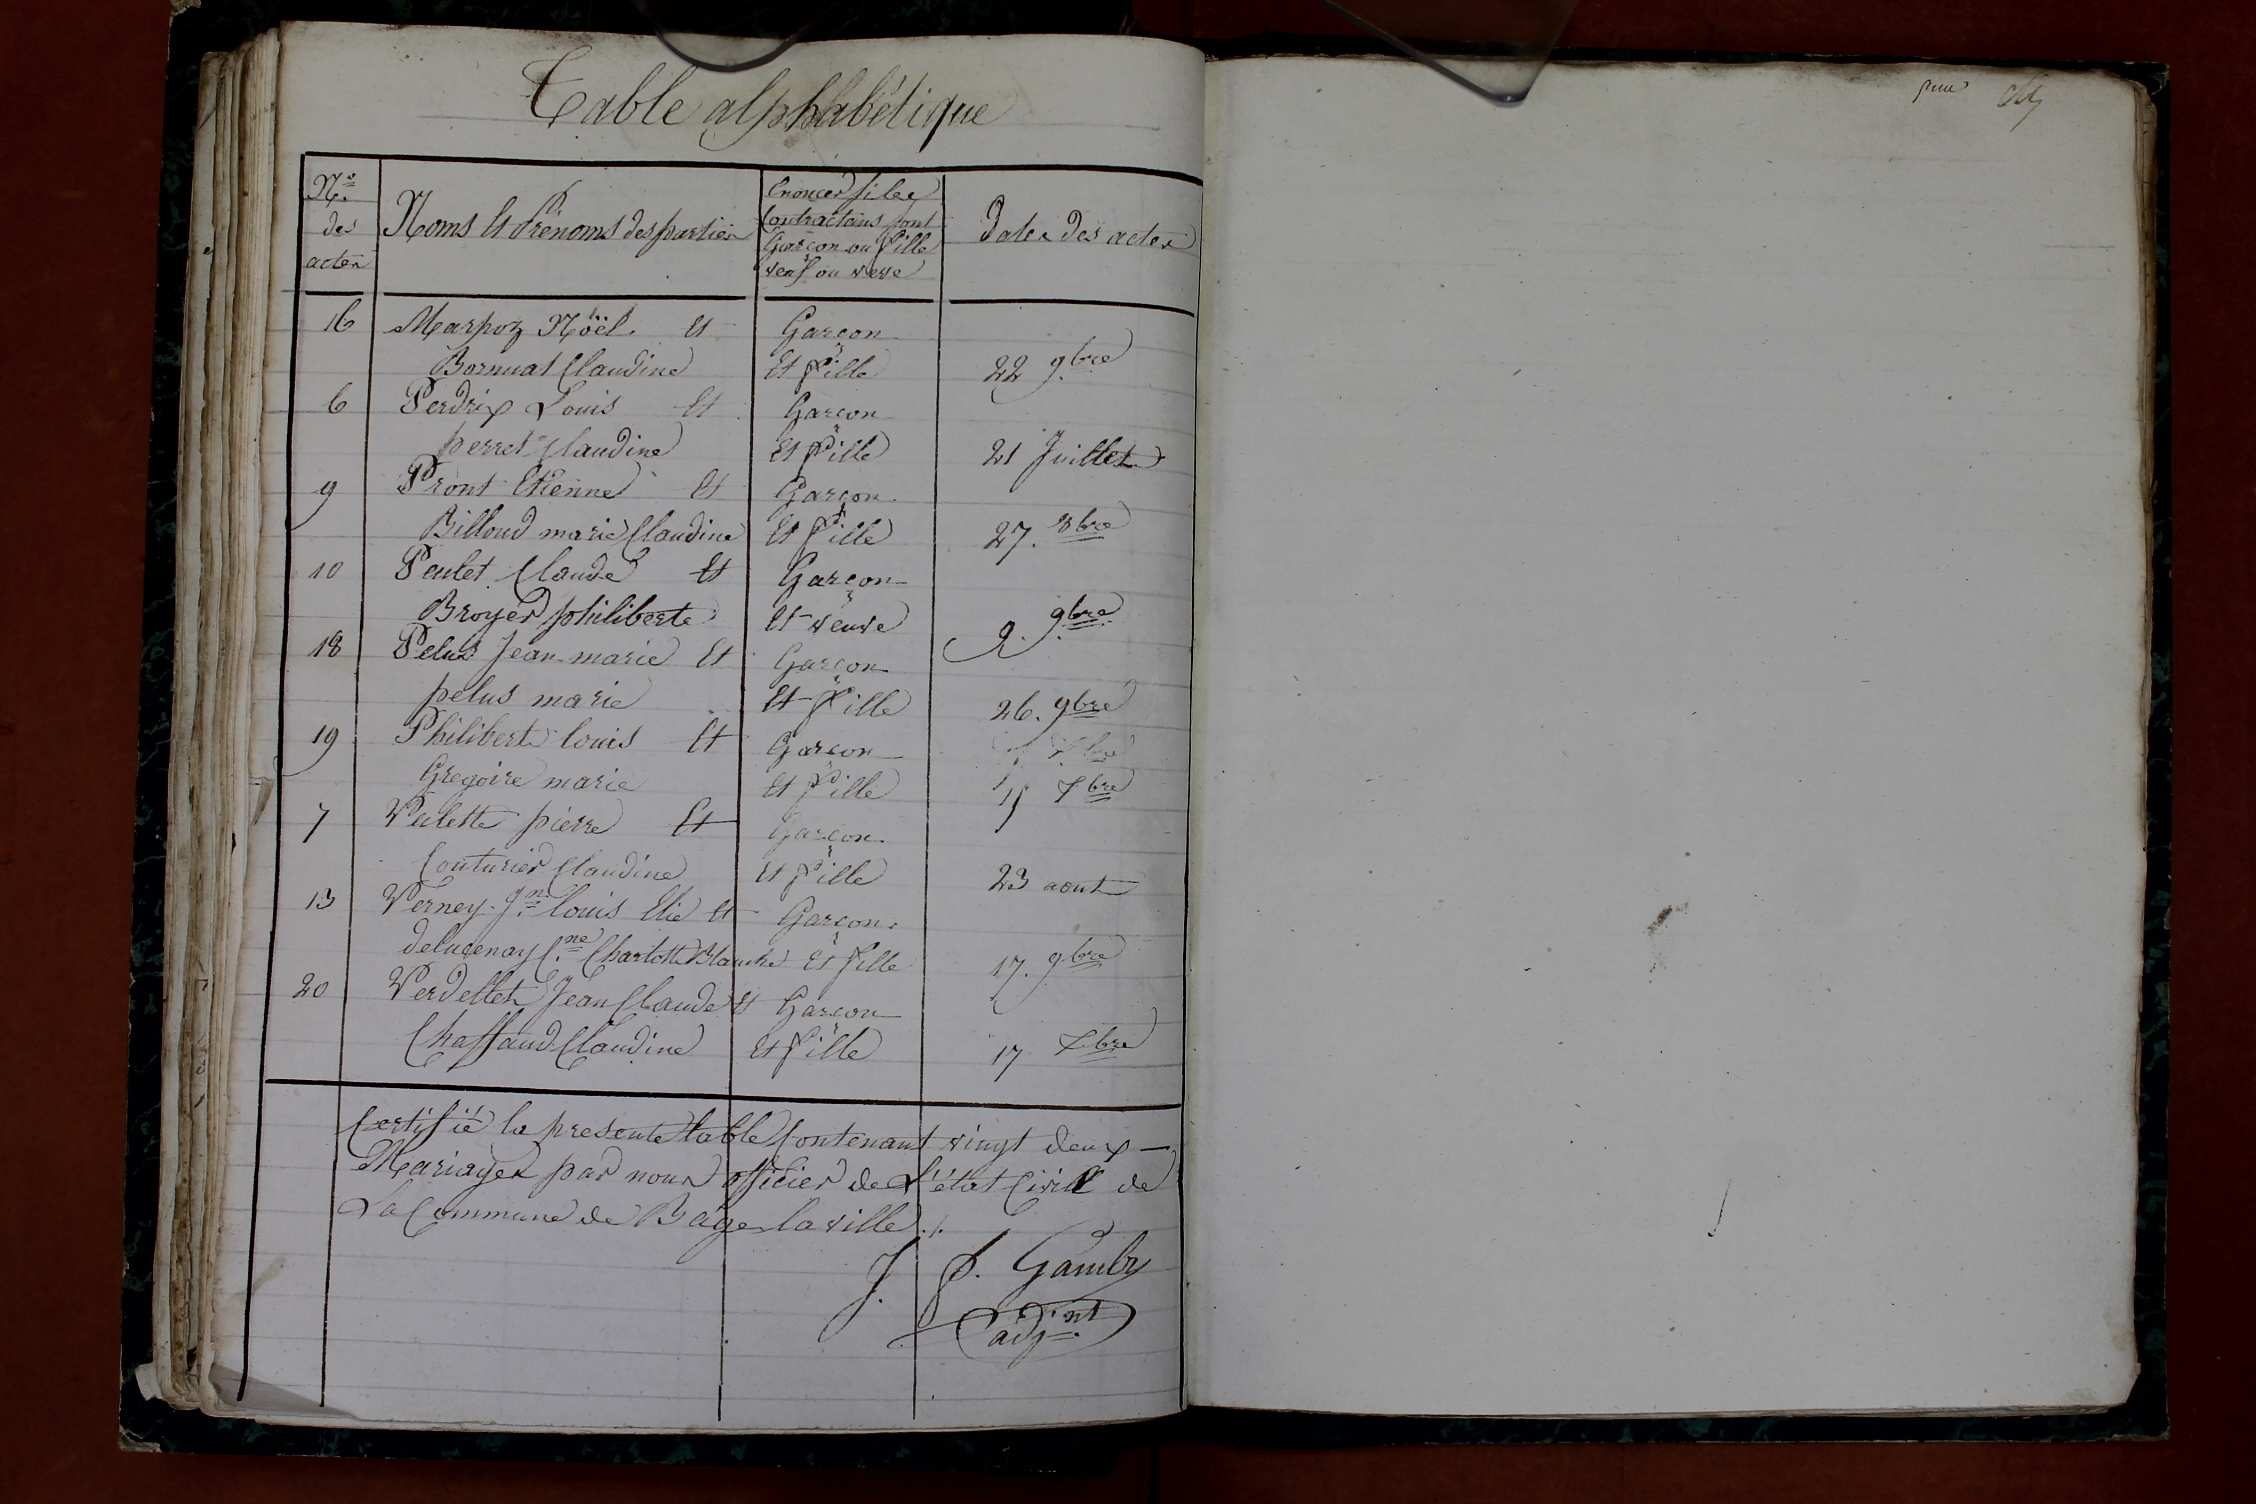 Table alphabétique
Nos des actes
Noms Et Prénoms des parties
Enoncer si les
Contractans sont
Garçon ou fille
veuf ou veve
Dates des actes
16 Marpoz Nöèl Et Garçon
Bornuat Claudine Et fille 22 9bre
6 Perdrix Louis Et Garçon
perret Claudine Et fille 21 Juillet
9 Pront Etienne Et Garçon
Billoud marie Claudine Et fille 27. 8bre
10 Peulet Claude Et Garçon
Broyer philiberte Et veuve 9. 9bre
18 Pelus Jean marie Et Garçon
pelus marie Et fille 26. 9bre
19 Philibert louis Et Garçon
Gregoire marie Et fille 15 Xbre
7 Vulette pierre Et Garçon
Couturier Claudine Et fille 23 aout
13 Verney Jn louis Elie Et Garçon
delucenay Cne Charlotte Blanche Et fille 17. 9bre
20 Verdellet Jean Claude Et Garçon
Chaffaud Claudine Et fille 17 Xbre
Certifié la presente table Contenant vingt deux
Mariages par nous officier de L'état Civill de
La Commune de Bâgé la ville ./.
J. P. Gamby
adjnt